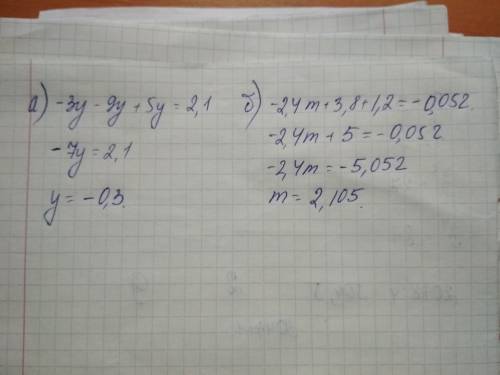 а) -3y - 9y + 5y = 2,1
-7y = 2,1
y = -0,3.
б) -2,4m + 3,8 + 1,2 = -0,052.
-2,4m + 5 = -0,052
-2,4m = -5,052
m = 2,105.